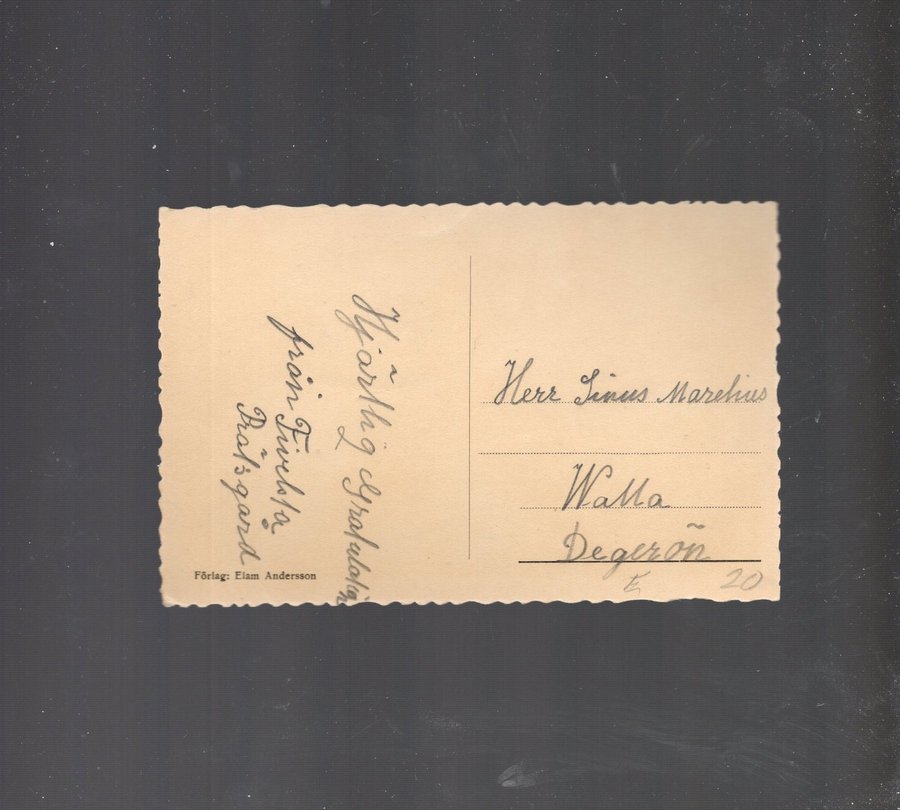 Hjärtlig Gratulation
från Fivelsta
Prästgård
Förlag: Elam Andersson
Herr Linus Marelius
Walla
Degerön
20